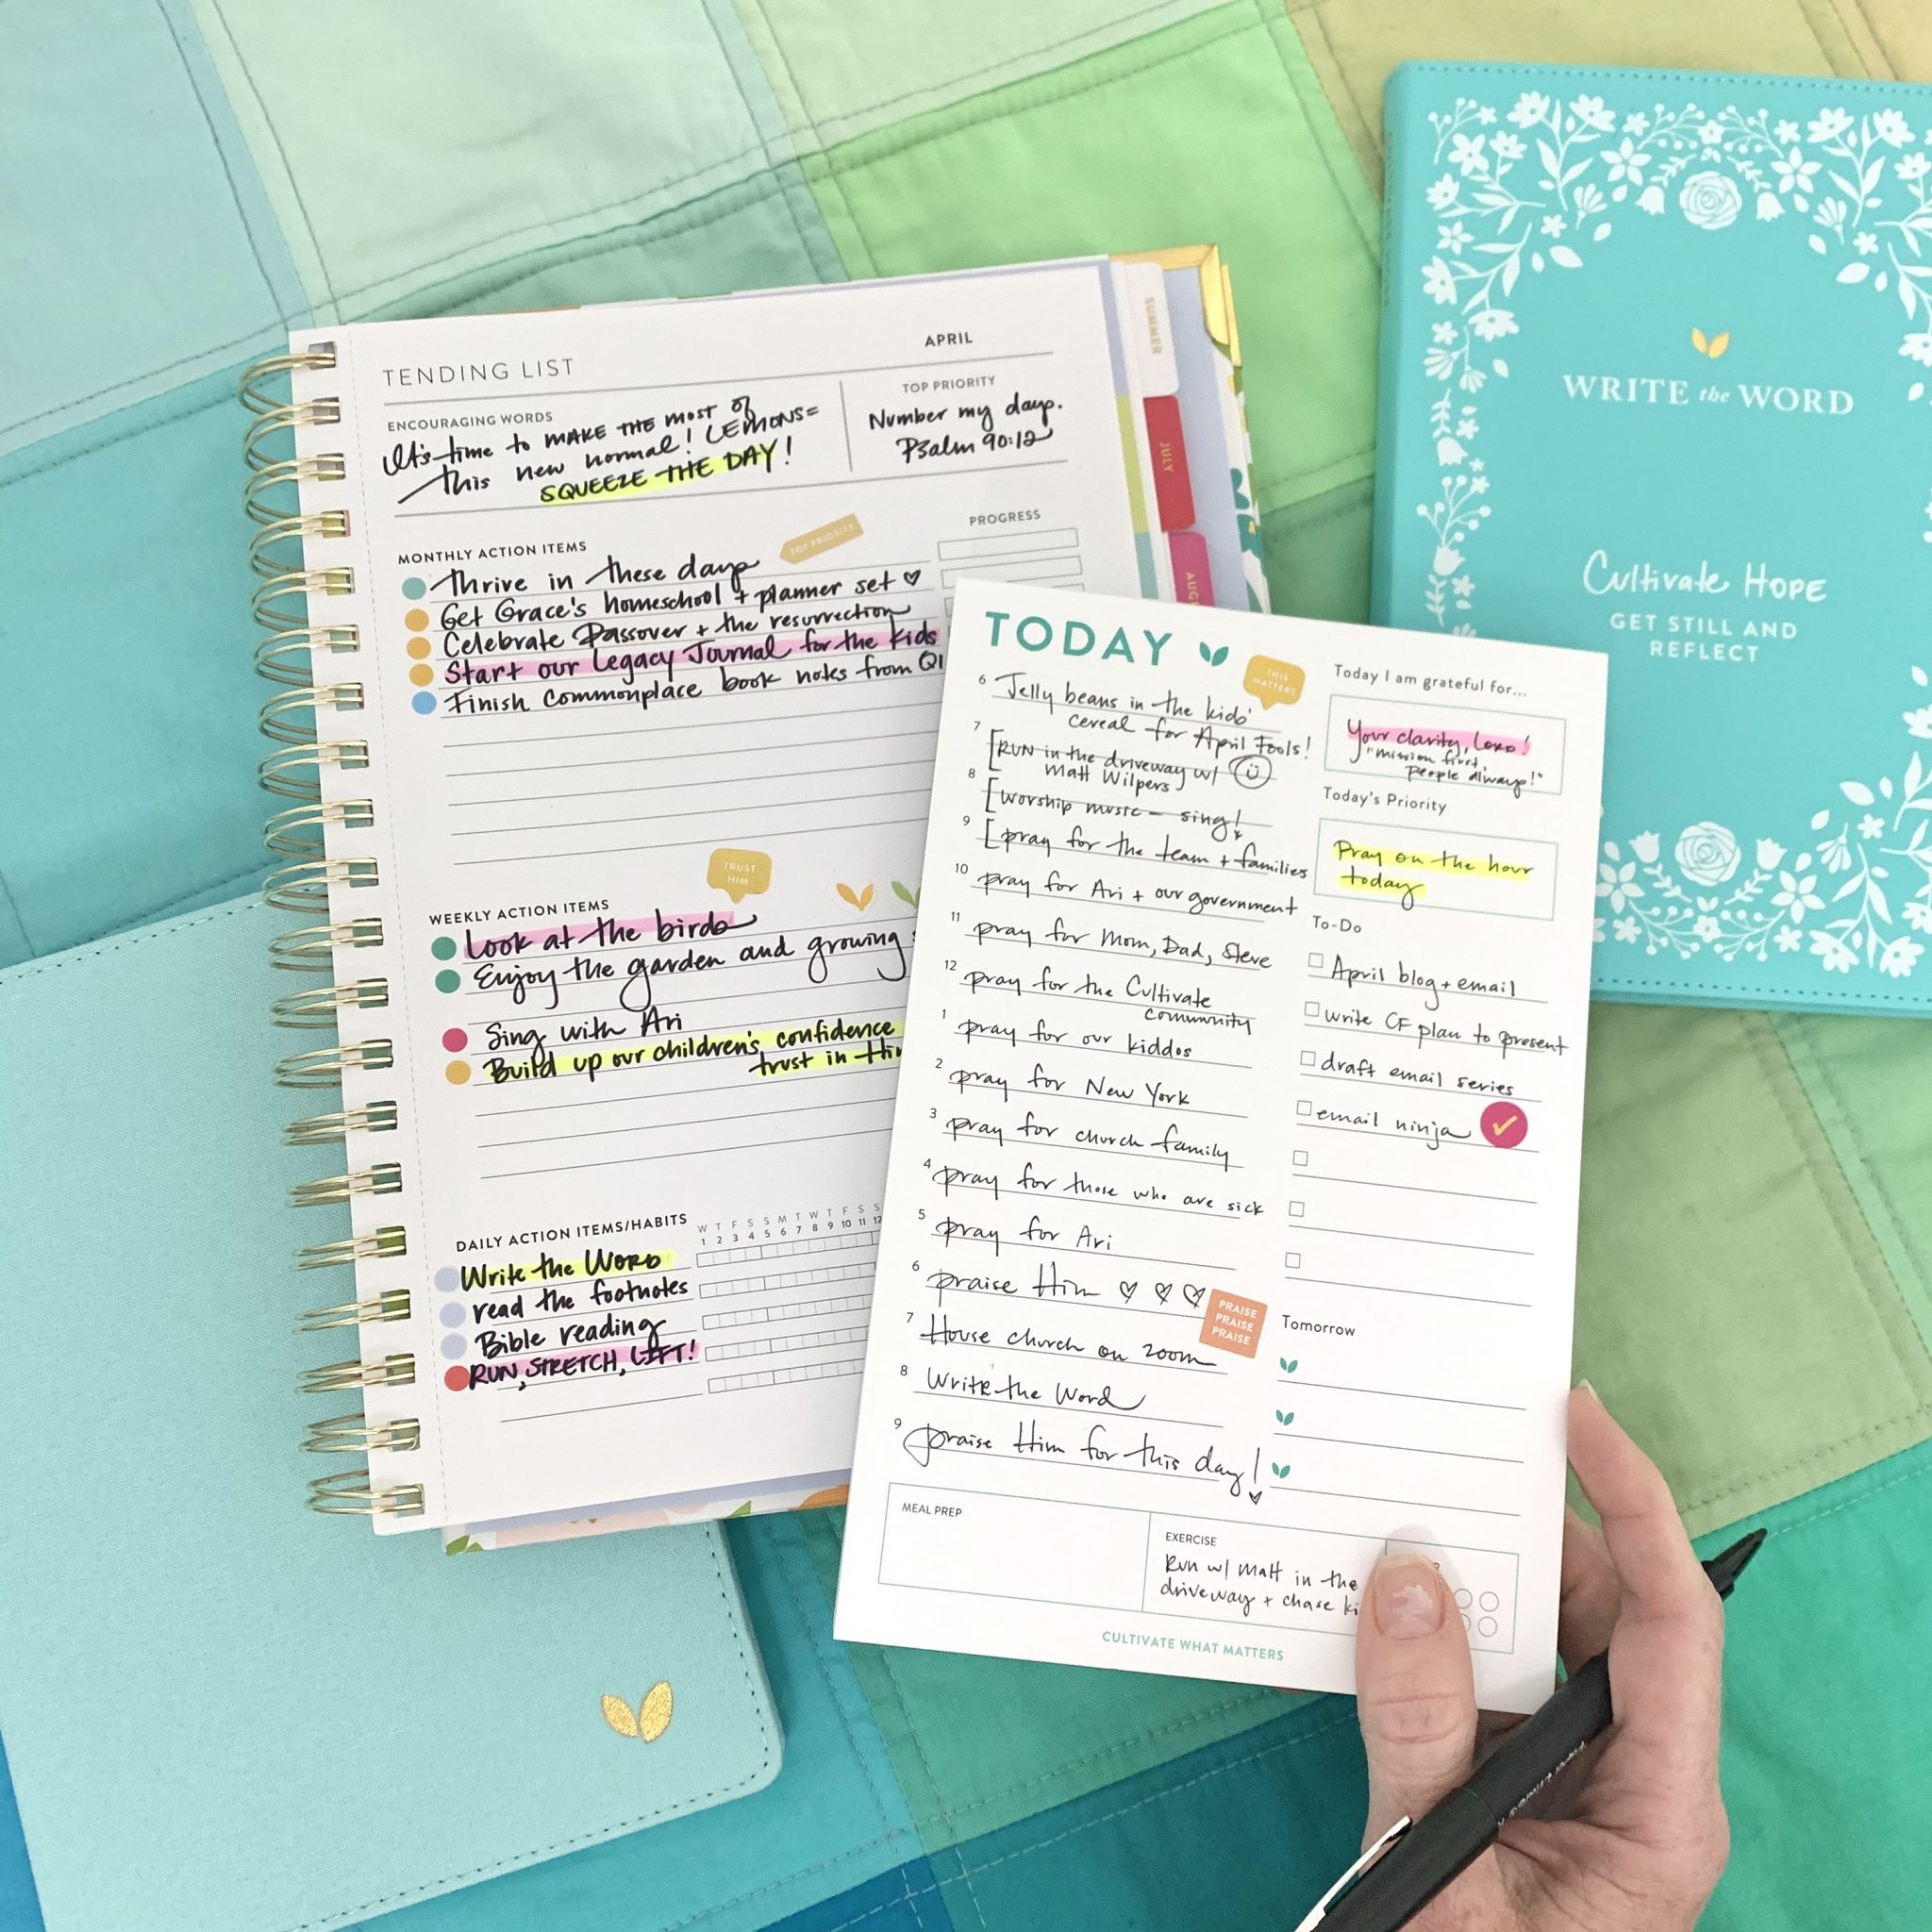 TENDING LIST
APRIL
ENCOURAGING WORDS
It's time to MAKE THE MOST of
this new normal! LEMONS=
SQUEEZE THE DAY!
TOP PRIORITY
Number my days.
Psalm 90:12
MONTHLY ACTION ITEMS
TOP PRIORITY
PROGRESS
Thrive in these days
Get Grace's homeschool + planner set ♡
Celebrate Passover + the resurrection
Start our Legacy Journal for the kids
Finish commonplace book notes from Q1
TRUST
HIM
WEEKLY ACTION ITEMS
Look at the birds
Enjoy the garden and growing
Sing with Ari
Build up our children's confidence
trust in Him
DAILY ACTION ITEMS/HABITS
W T F S S M T W T F S S
1 2 3 4 5 6 7 8 9 10 11 12
Write the WORD
read the footnotes
Bible reading
RUN, STRETCH, LIFT!
SUMMER
JULY
AUG
TODAY
THIS
MATTERS
6 Jelly beans in the kids'
cereal for April Fools!
7 [RUN in the driveway w/
Matt Wilpers
8 [worship music - sing!
9 [pray for the team + families
10 pray for Ari + our government
11 pray for Mom, Dad, Steve
12 pray for the Cultivate
community
1 pray for our kiddos
2 pray for New York
3 pray for church family
4 pray for those who are sick
5 pray for Ari
6 praise Him ♡ ♡ ♡
PRAISE
PRAISE
PRAISE
7 House church on zoom
8 Write the Word
9 praise Him for this day!
Today I am grateful for...
Your clarity, LORD!
"mission first,
people always!"
Today's Priority
Pray on the hour
today
To-Do
April blog + email
write CF plan to present
draft email series
email ninja
Tomorrow
MEAL PREP
EXERCISE
Run w/ Matt in the
driveway + chase ki
CULTIVATE WHAT MATTERS
WRITE the WORD
Cultivate Hope
GET STILL AND
REFLECT